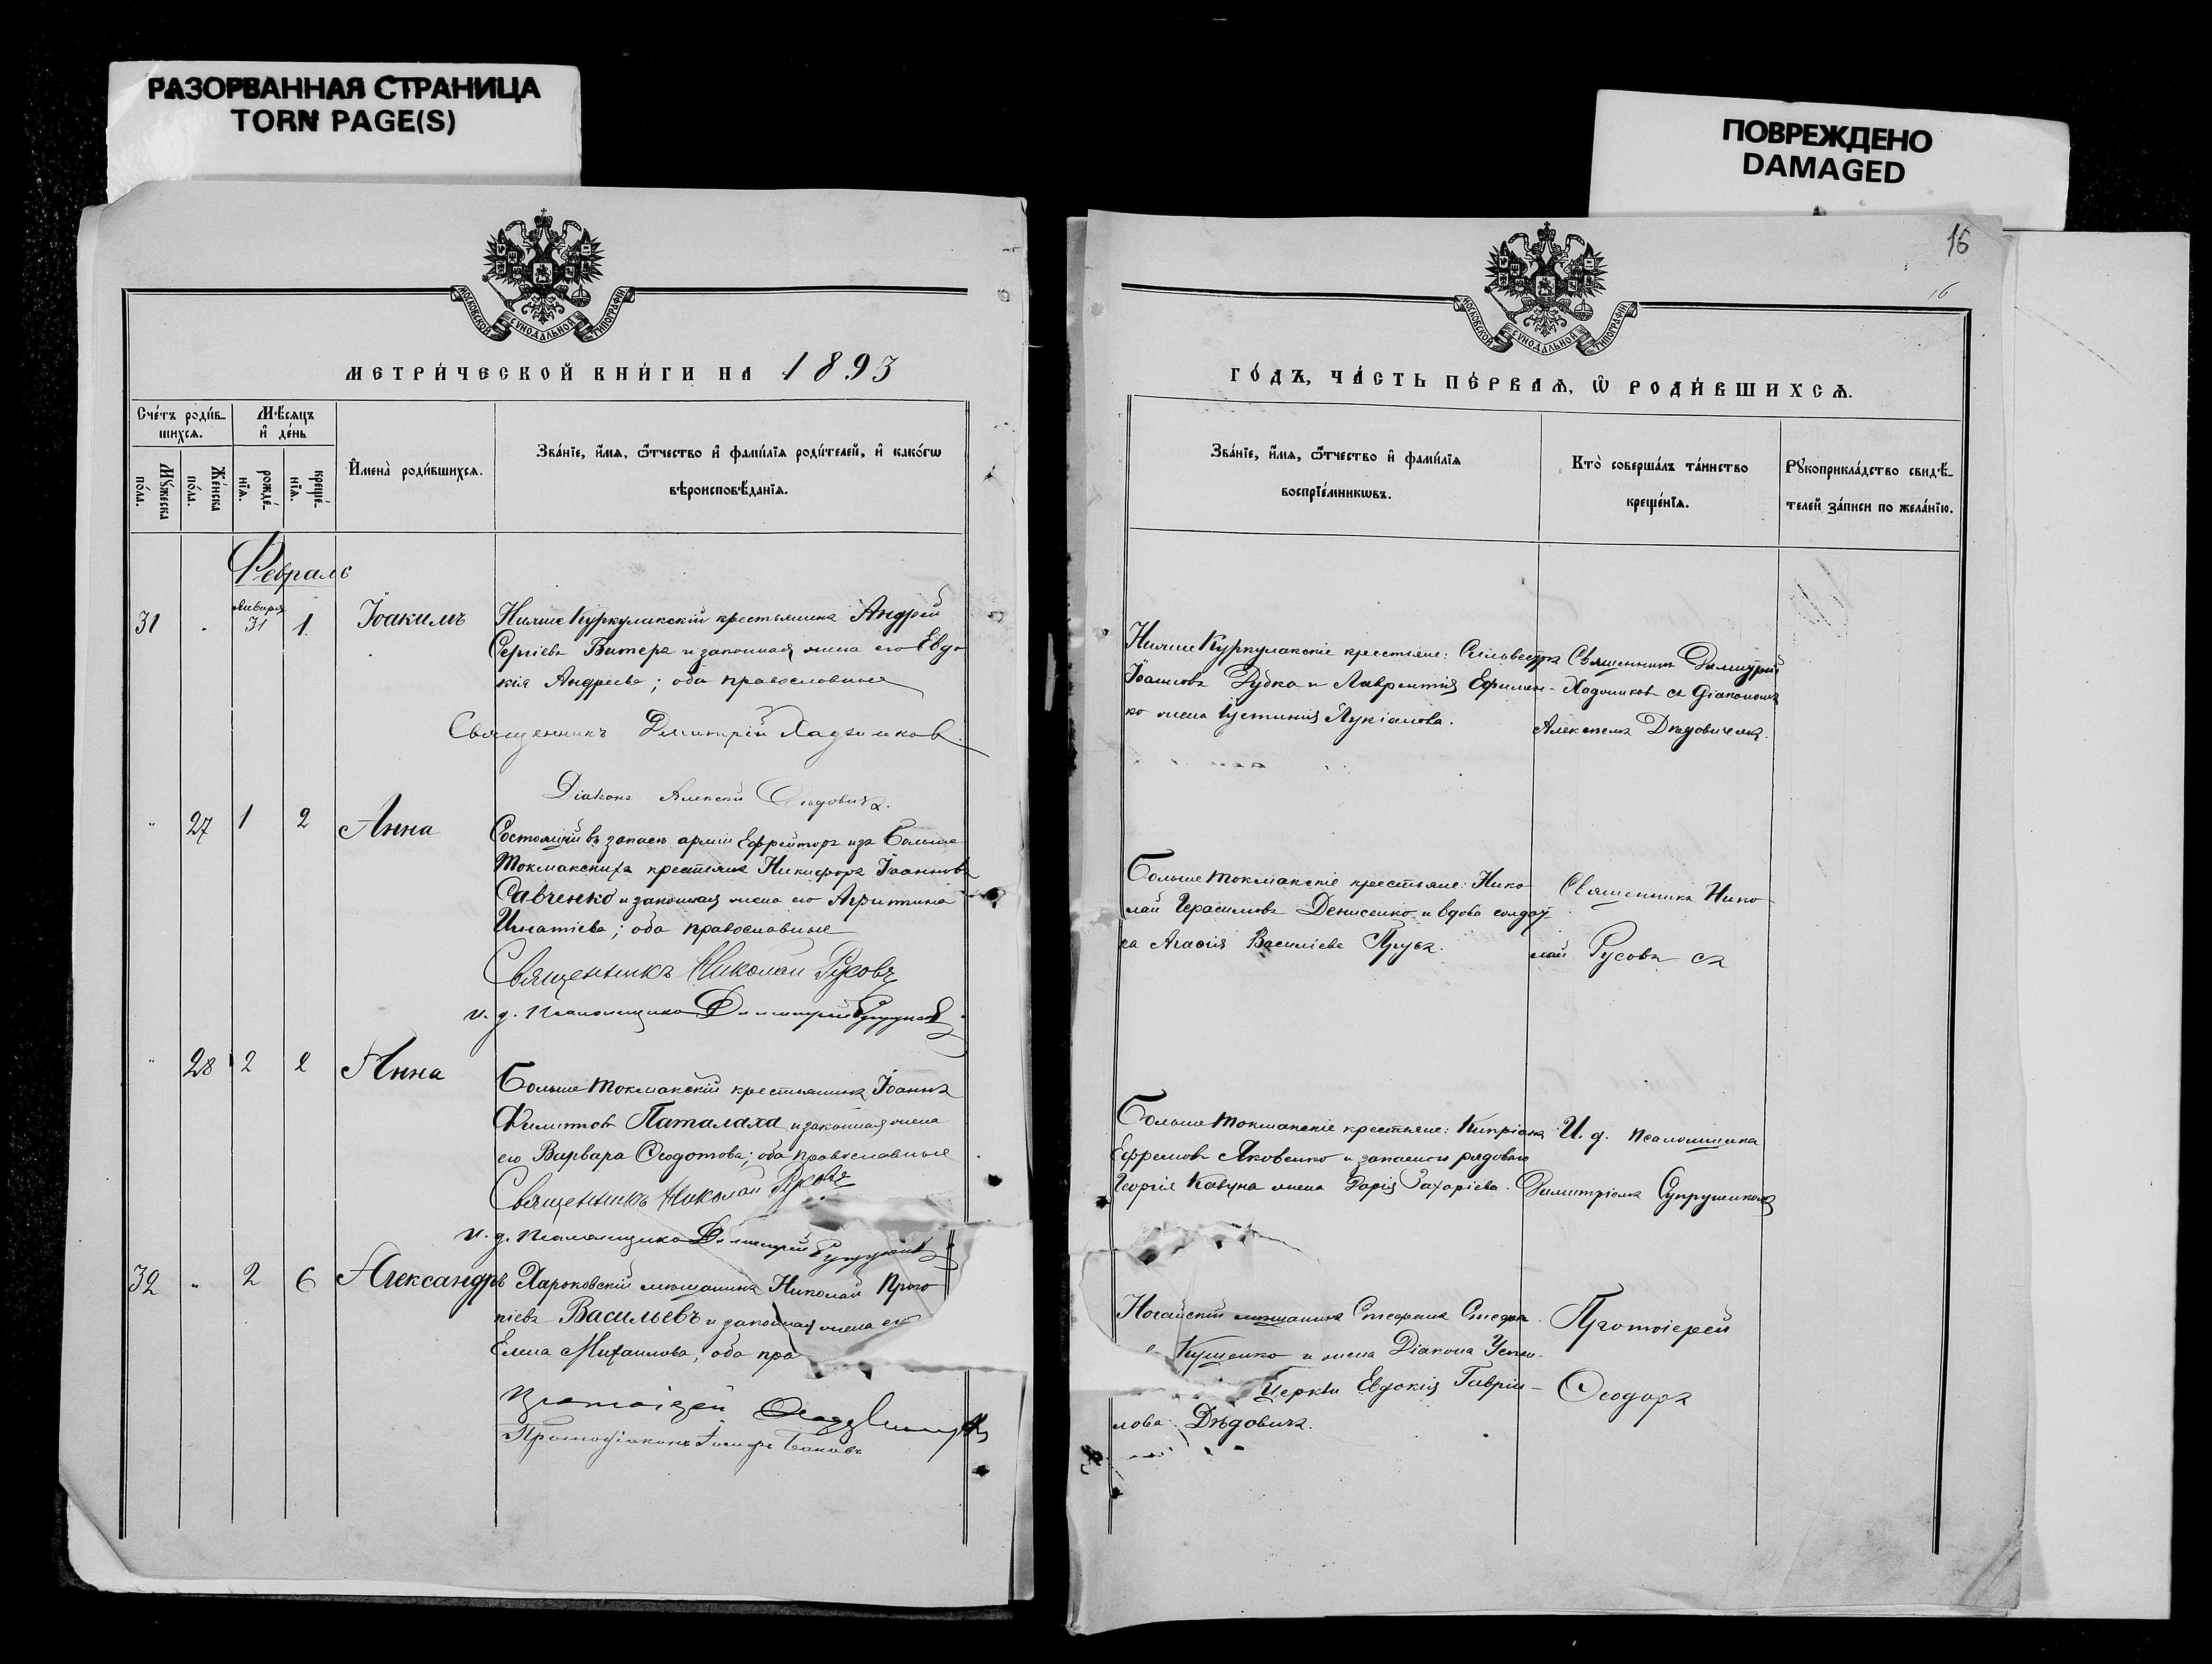 РАЗОРВАННАЯ СТРАНИЦА
TORN PAGE(S)
ПОВРЕЖДЕНО
DAMAGED
МОСКОВСКОЙ СѴНОДАЛЬНОЙ ТИПОГРАФІИ
МЕТРИ́ЧЕСКОЙ КНИ́ГИ НА 1893
Сче́тъ роди́в-
шихсѧ.
Мѣ́сѧцъ
и҆ де́нь
Мꙋ́жеска
по́ла.
Же́нска
по́ла.
рожде́-
нїѧ.
креще́-
нїѧ.
И҆мена̀ роди́вшихсѧ.
Зва́нїе, и҆́мѧ, ѻ҆́тчество и҆ фами́лїѧ роди́телей, и҆ како́гѡ
вѣроисповѣ́данїѧ.
Февраль
31
Января
31
1.
Іоакимъ
Нижне Куркулакскій крестьянинъ Андрей
Сергіевъ Витера и законная жена его Евдо
кія Андреева; оба православные
Священникъ Димитрій Хаджиковъ.
Діаконъ Алексій Дѣдовичъ.
27
1
2
Анна
Состоящій въ запасѣ арміи Ефрейторъ изъ Больше
Токмакскихъ крестьянъ Никифоръ Іоанновъ
Савченко и законная жена его Агрипина
Игнатіева; оба православные
Священникъ Николай Русовъ
и. д. псаломщика Димитрій
28
2
2
Анна
Больше Токмакскій крестьянинъ Іоаннъ
Филиповъ Паталаха и законная жена
его Варвара Ѳеодотова; оба православные
Священникъ Николай Русовъ
и. д. псаломщика Димитрій
32
2
6
Александръ
Харьковскій мѣщанинъ Николай Проко
піевъ Васильевъ и законная жена ег
Елена Михаилова, оба пра
Протоіерей
Протодіаконъ Іосифъ
16
16
МОСКОВСКОЙ СѴНОДАЛЬНОЙ ТИПОГРАФІИ
ГО́ДЪ, ЧА́СТЬ ПЕ́РВАѦ, Ѡ҆ РОДИ́ВШИХСѦ.
Зва́нїе, и҆́мѧ, ѻ҆́тчество и҆ фами́лїѧ
воспрїе́мникѡвъ.
Кто̀ соверша́лъ та́инство
креще́нїѧ.
Рꙋкоприкла́дство свидѣ́-
телей за́писи по жела́нїю.
Нижне Куркулакскіе крестьяне: Сильвестръ
Іоанновъ Дубка и Лаврентія Ефимен-
ко жена Іустинія Лукіанова.
Священникъ Димитрій
Хаджиковъ съ діакономъ
Алексѣемъ Дѣдовичемъ.
Больше Токмакскіе крестьяне: Нико
лай Герасимовъ Денисенко и вдова солдат
ка Агаѳія Василіева Прусъ.
Священникъ Нико
лай Русовъ съ
Больше Токмакскіе крестьяне: Кипріанъ
Ефремовъ Яковенко и запаснаго рядоваго
Георгія Кавуна жена Дарія Захаріева.
И. д. псаломщика
Димитріемъ Супруненкомъ
Ногайскій мѣщанинъ Стефанъ Стефа
Кушенко и жена Діакона Успен-
Церкви Евдокія Гавріи-
лова Дѣдовичъ.
Протоіерей
Ѳеодоръ